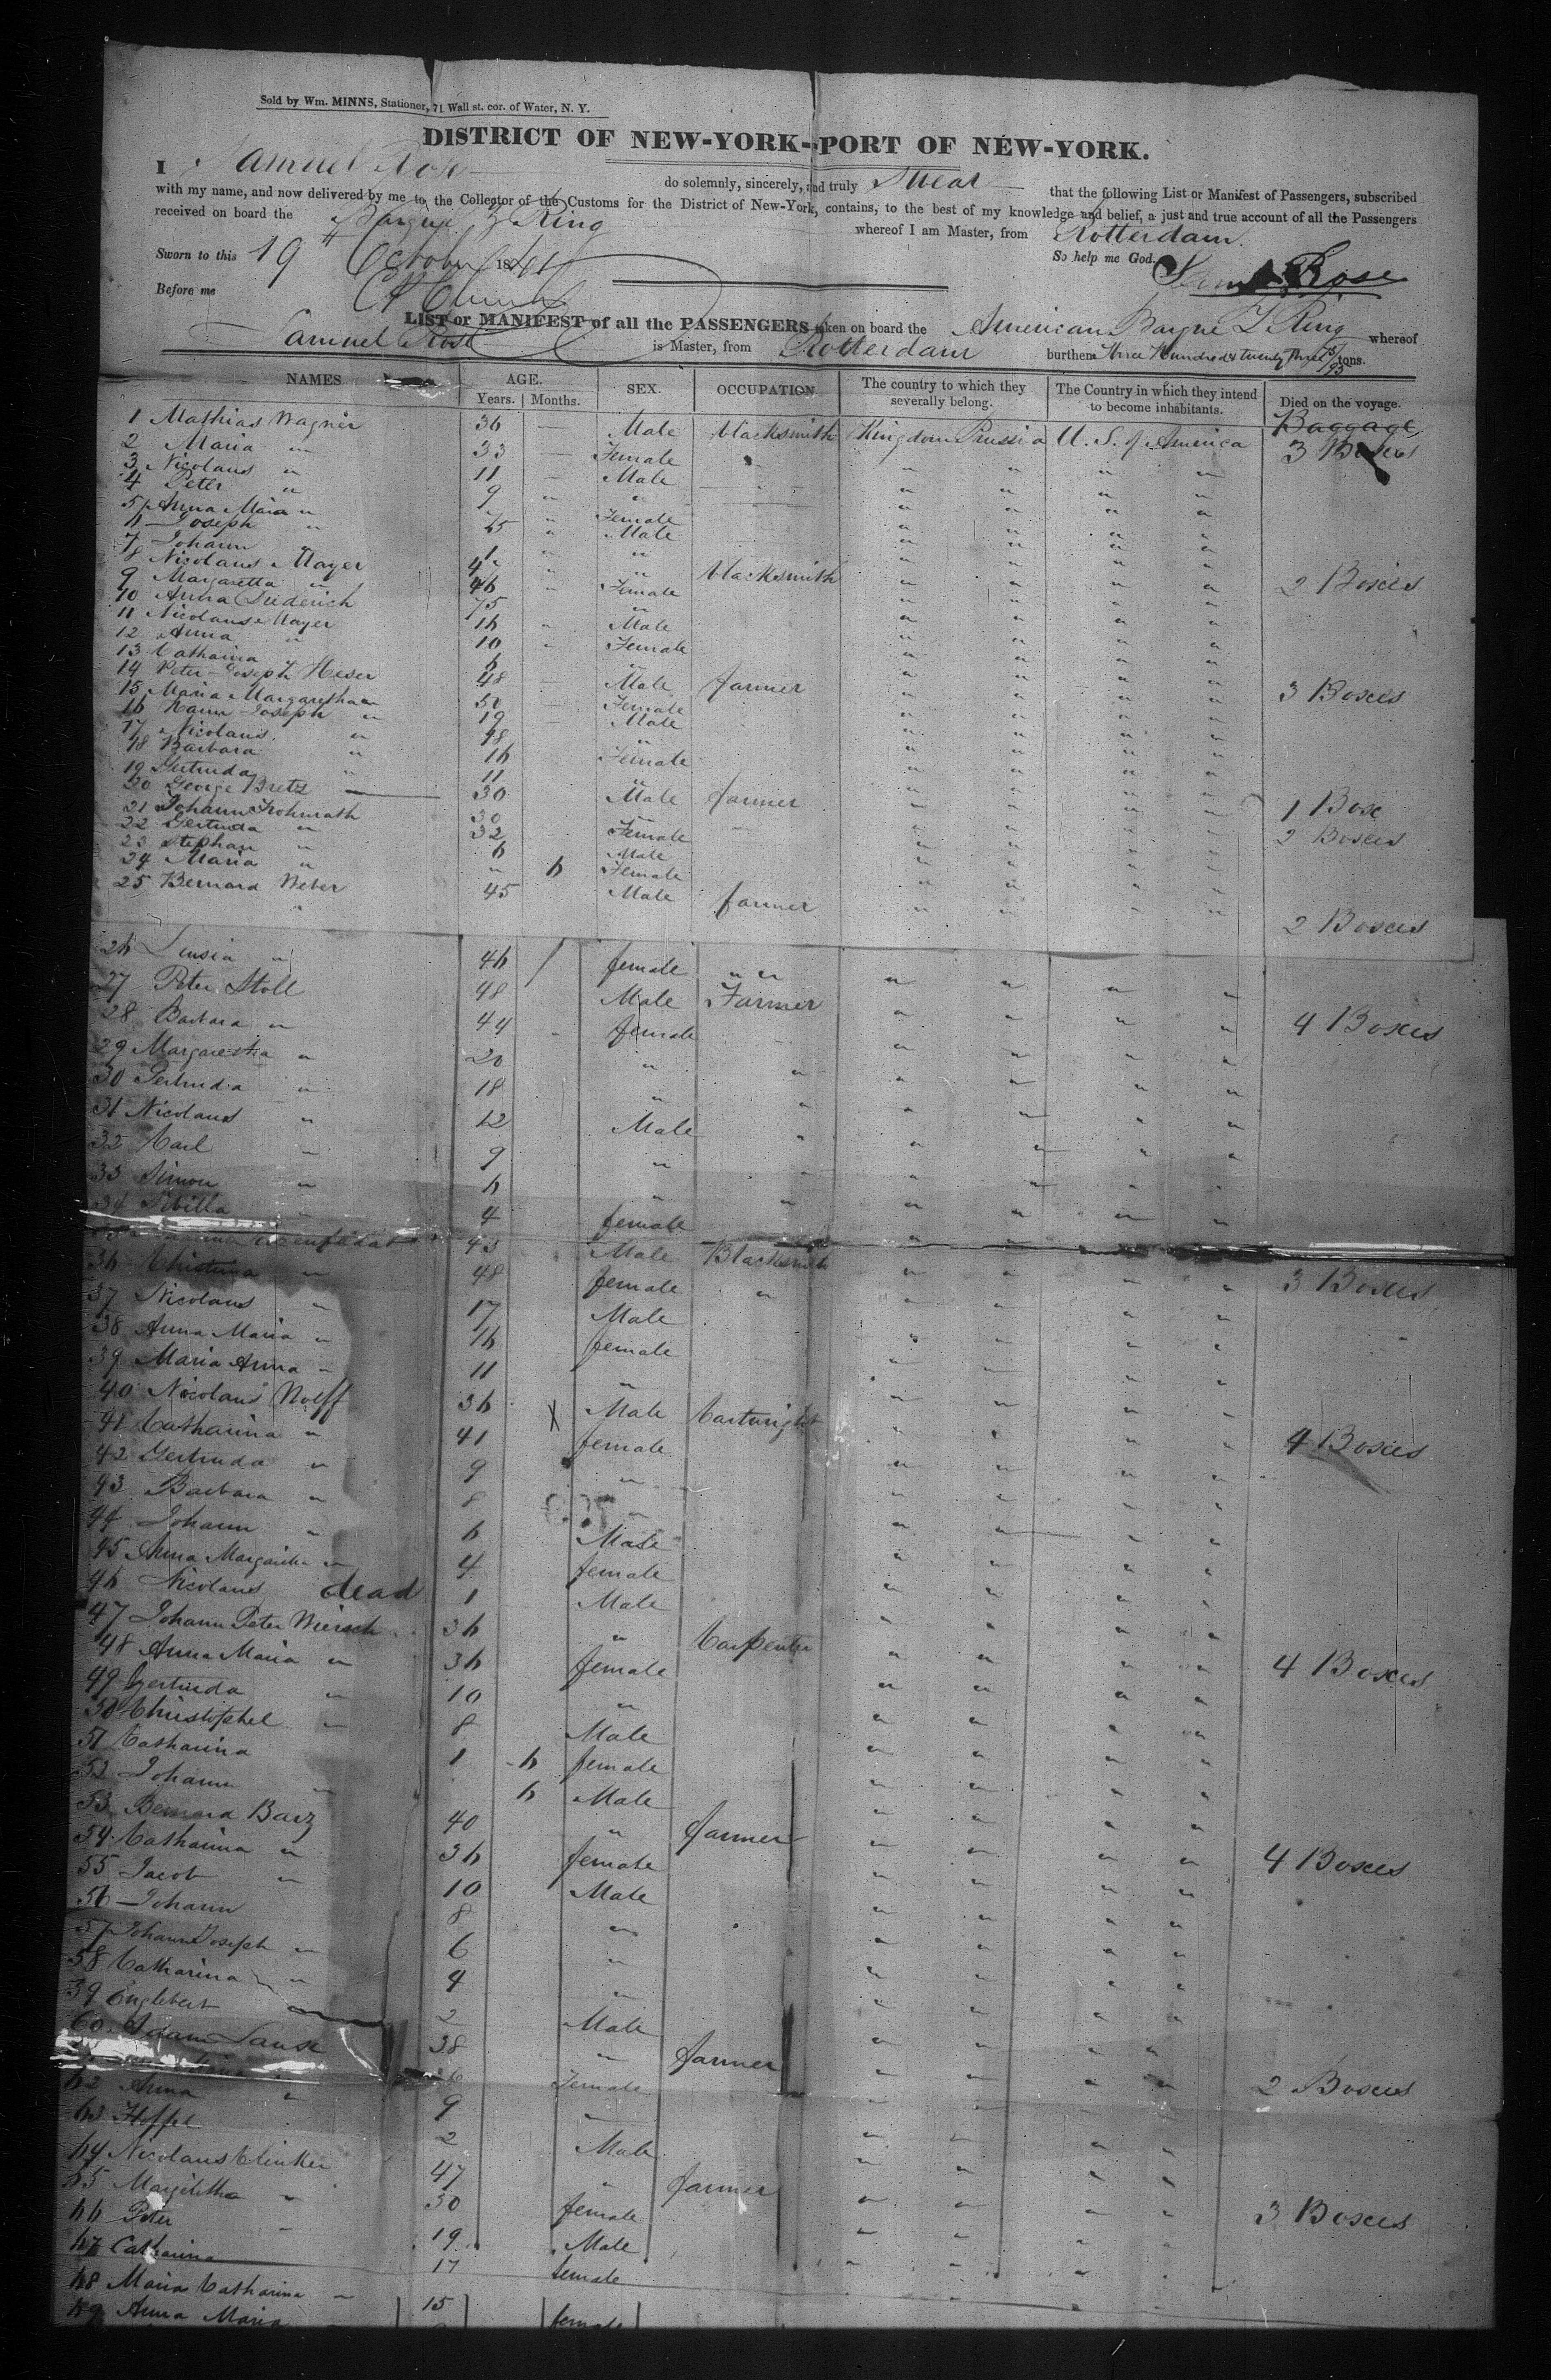 Sold by Wm. MINNS, Stationer, 71 Wall st. cor. of Water, N. Y.
DISTRICT OF NEW-YORK--PORT OF NEW-YORK.
I Samuel Rose do solemnly, sincerely, and truly Swear that the following List or Manifest of Passengers, subscribed
with my name, and now delivered by me to the Collector of the Customs for the District of New-York, contains, to the best of my knowledge and belief, a just and true account of all the Passengers
received on board the Barque Z Ring whereof I am Master, from Rotterdam.
Sworn to this 19th October 1841 So help me God. Saml Rose
Before me
LIST or MANIFEST of all the PASSENGERS taken on board the American Barque Z. Ring whereof
Samuel Rose is Master, from Rotterdam burthen Three Hundred & twenty three /95 tons.
NAMES AGE. Years. Months. SEX. OCCUPATION. The country to which they severally belong. The Country in which they intend to become inhabitants. Died on the voyage.
Baggage
1 Mathias Wagner 36 — Male blacksmith Kingdom Prussia U. S. of America 3 Boxes
2 Maria " 33 — Female " " " "
3 Nicolaus " 11 — Male " " " "
4 Peter " 9 " " " " " "
5 Anna Maria " " Female " " " "
6 Joseph " " Male " " " "
7 Johann 1 " " " " " "
8 Nicolaus Mayer " " blacksmith " " " " 2 Boxes
9 Margaretta " 46 " Female " " " "
10 Anna Diederich 75 " " " " "
11 Nicolaus Mayer 16 " Male " " " "
12 Anna " 10 " Female " " " "
13 Catharina 6 " " " " "
14 Peter Joseph Heser 48 — Male farmer " " " " 3 Boxes
15 Maria Margaretha " 50 — Female " " " "
16 Hann Joseph " 19 — Male " " " "
17 Nicolaus " 18 " " " " "
18 Barbara " 16 Female " " " "
19 Gertruda " 11 " " " " "
20 George Bretz 30 Male farmer " " " " 1 Box
21 Johann Frohnrath 30 " " " " " 2 Boxes
22 Gertruda " 32 Female " " " "
23 Stephan " 6 Male " " " "
24 Maria " " 6 Female " " " "
25 Bernard Weber 45 Male farmer " " " " 2 Boxes
26 " 46 female " " " " " "
27 Peter Stoll 48 Male Farmer " " " " 4 Boxes
28 Barbara " 44 female " " " "
29 Margaretha " 20 " " " " " "
30 Gertruda " 18 " " " " " "
31 Nicolaus " 12 Male " " " " "
32 Carl " 9 " " " " "
33 Simon " 6 " " " " " "
34 Sibilla " 4 female " " " "
43 Male Blacksmith " " " " 3 Boxes
36 Christina " 48 female " " " " "
37 Nicolaus " 17 Male " " " "
38 Anna Maria " 16 female " " " "
39 Maria Anna " 11 " " " " "
40 Nicolaus Wolff 36 X Male Cartwright " " " " 4 Boxes
41 Catharina " 41 female " " " "
42 Gertruda " 9 " " " " "
43 Barbara " 8 " " " " "
44 Johann " 6 Male " " " "
45 Anna Margaritha " 4 female " " " "
46 Nicolaus dead 1 Male " " " "
47 Johann Peter Wiersch 36 " Carpenter " " " " 4 Boxes
48 Anna Maria " 36 female " " " "
49 Gertruda " 10 " " " " "
50 Christophel " 8 Male " " " "
51 Catharina 1 6 female " " " "
52 Johann " 6 Male " " " "
53 Bernard Barz 40 " farmer " " " " 4 Boxes
54 Catharina " 36 female " " " "
55 Jacob " 10 Male " " " "
56 Johann 8 " " " " "
57 Johann Joseph " 6 " " " " "
58 Catharina " 4 " " " " "
59 Englebert 2 Male " " " "
60 Adam 38 " farmer " " " " 2 Boxes
Female " " " "
62 Anna " 9 " " " "
63 2 Male " " " "
64 Nicolaus Clinker 47 " farmer " " " " 3 Boxes
65 " 30 female " " " "
66 Peter " 19 Male " " " "
67 Catharina 17 female " " " "
68 Maria Catharina " 15 female
69 Anna Maria